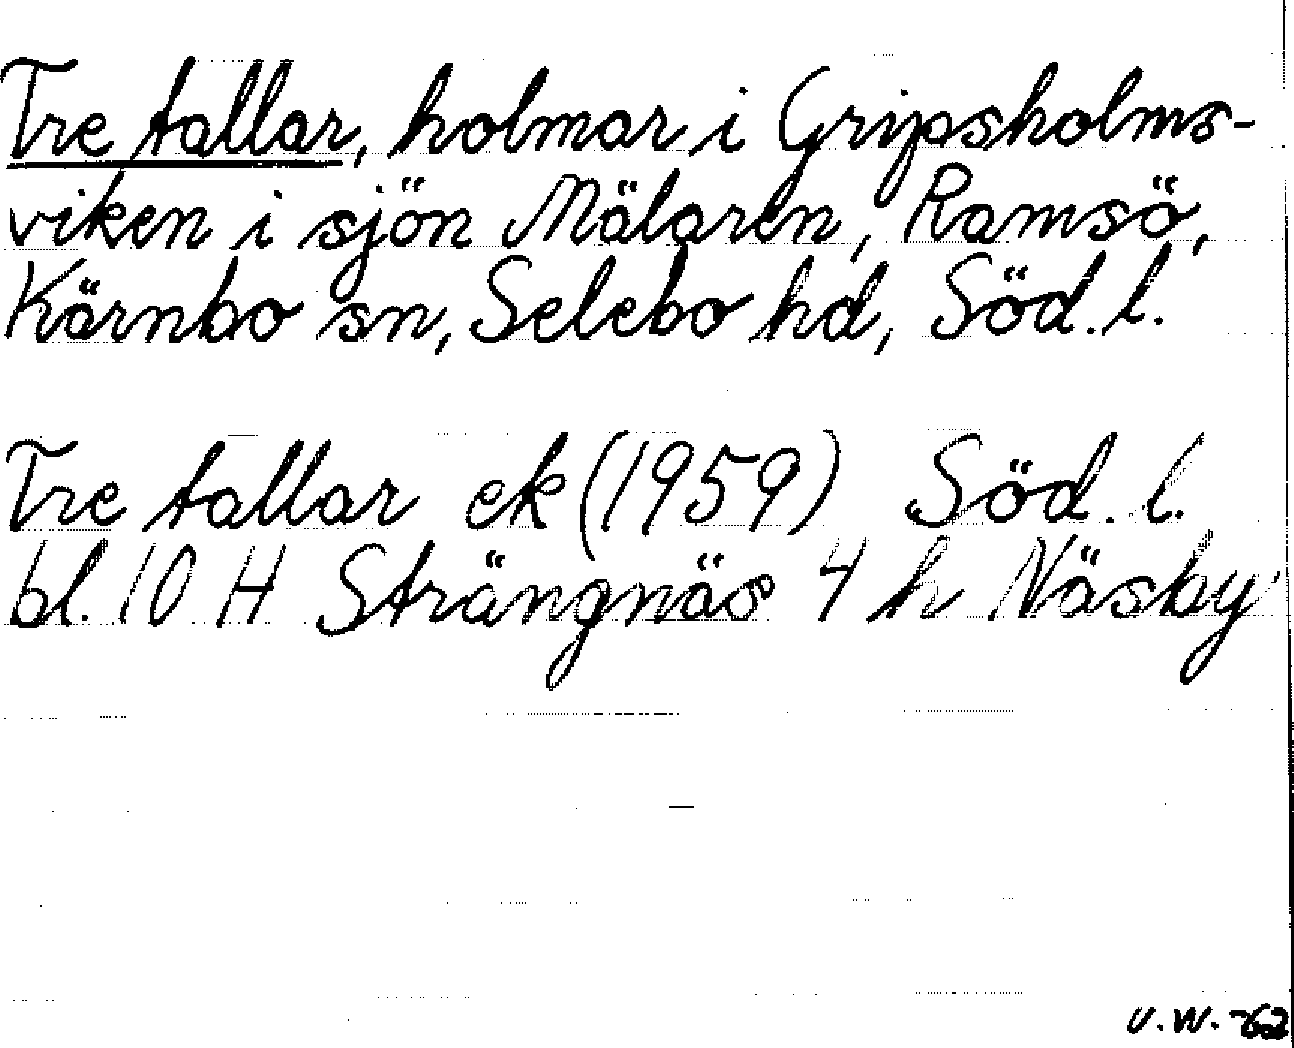 Tre tallar, holmar i Gripsholms-
viken i sjön Mälaren, Ramsö,
Kärnbo sn, Selebo hd, Söd. l.
Tre tallar ek (1959) Söd. l.
bl. 10 H Strängnäs 4 h Näsby
U.W. -62